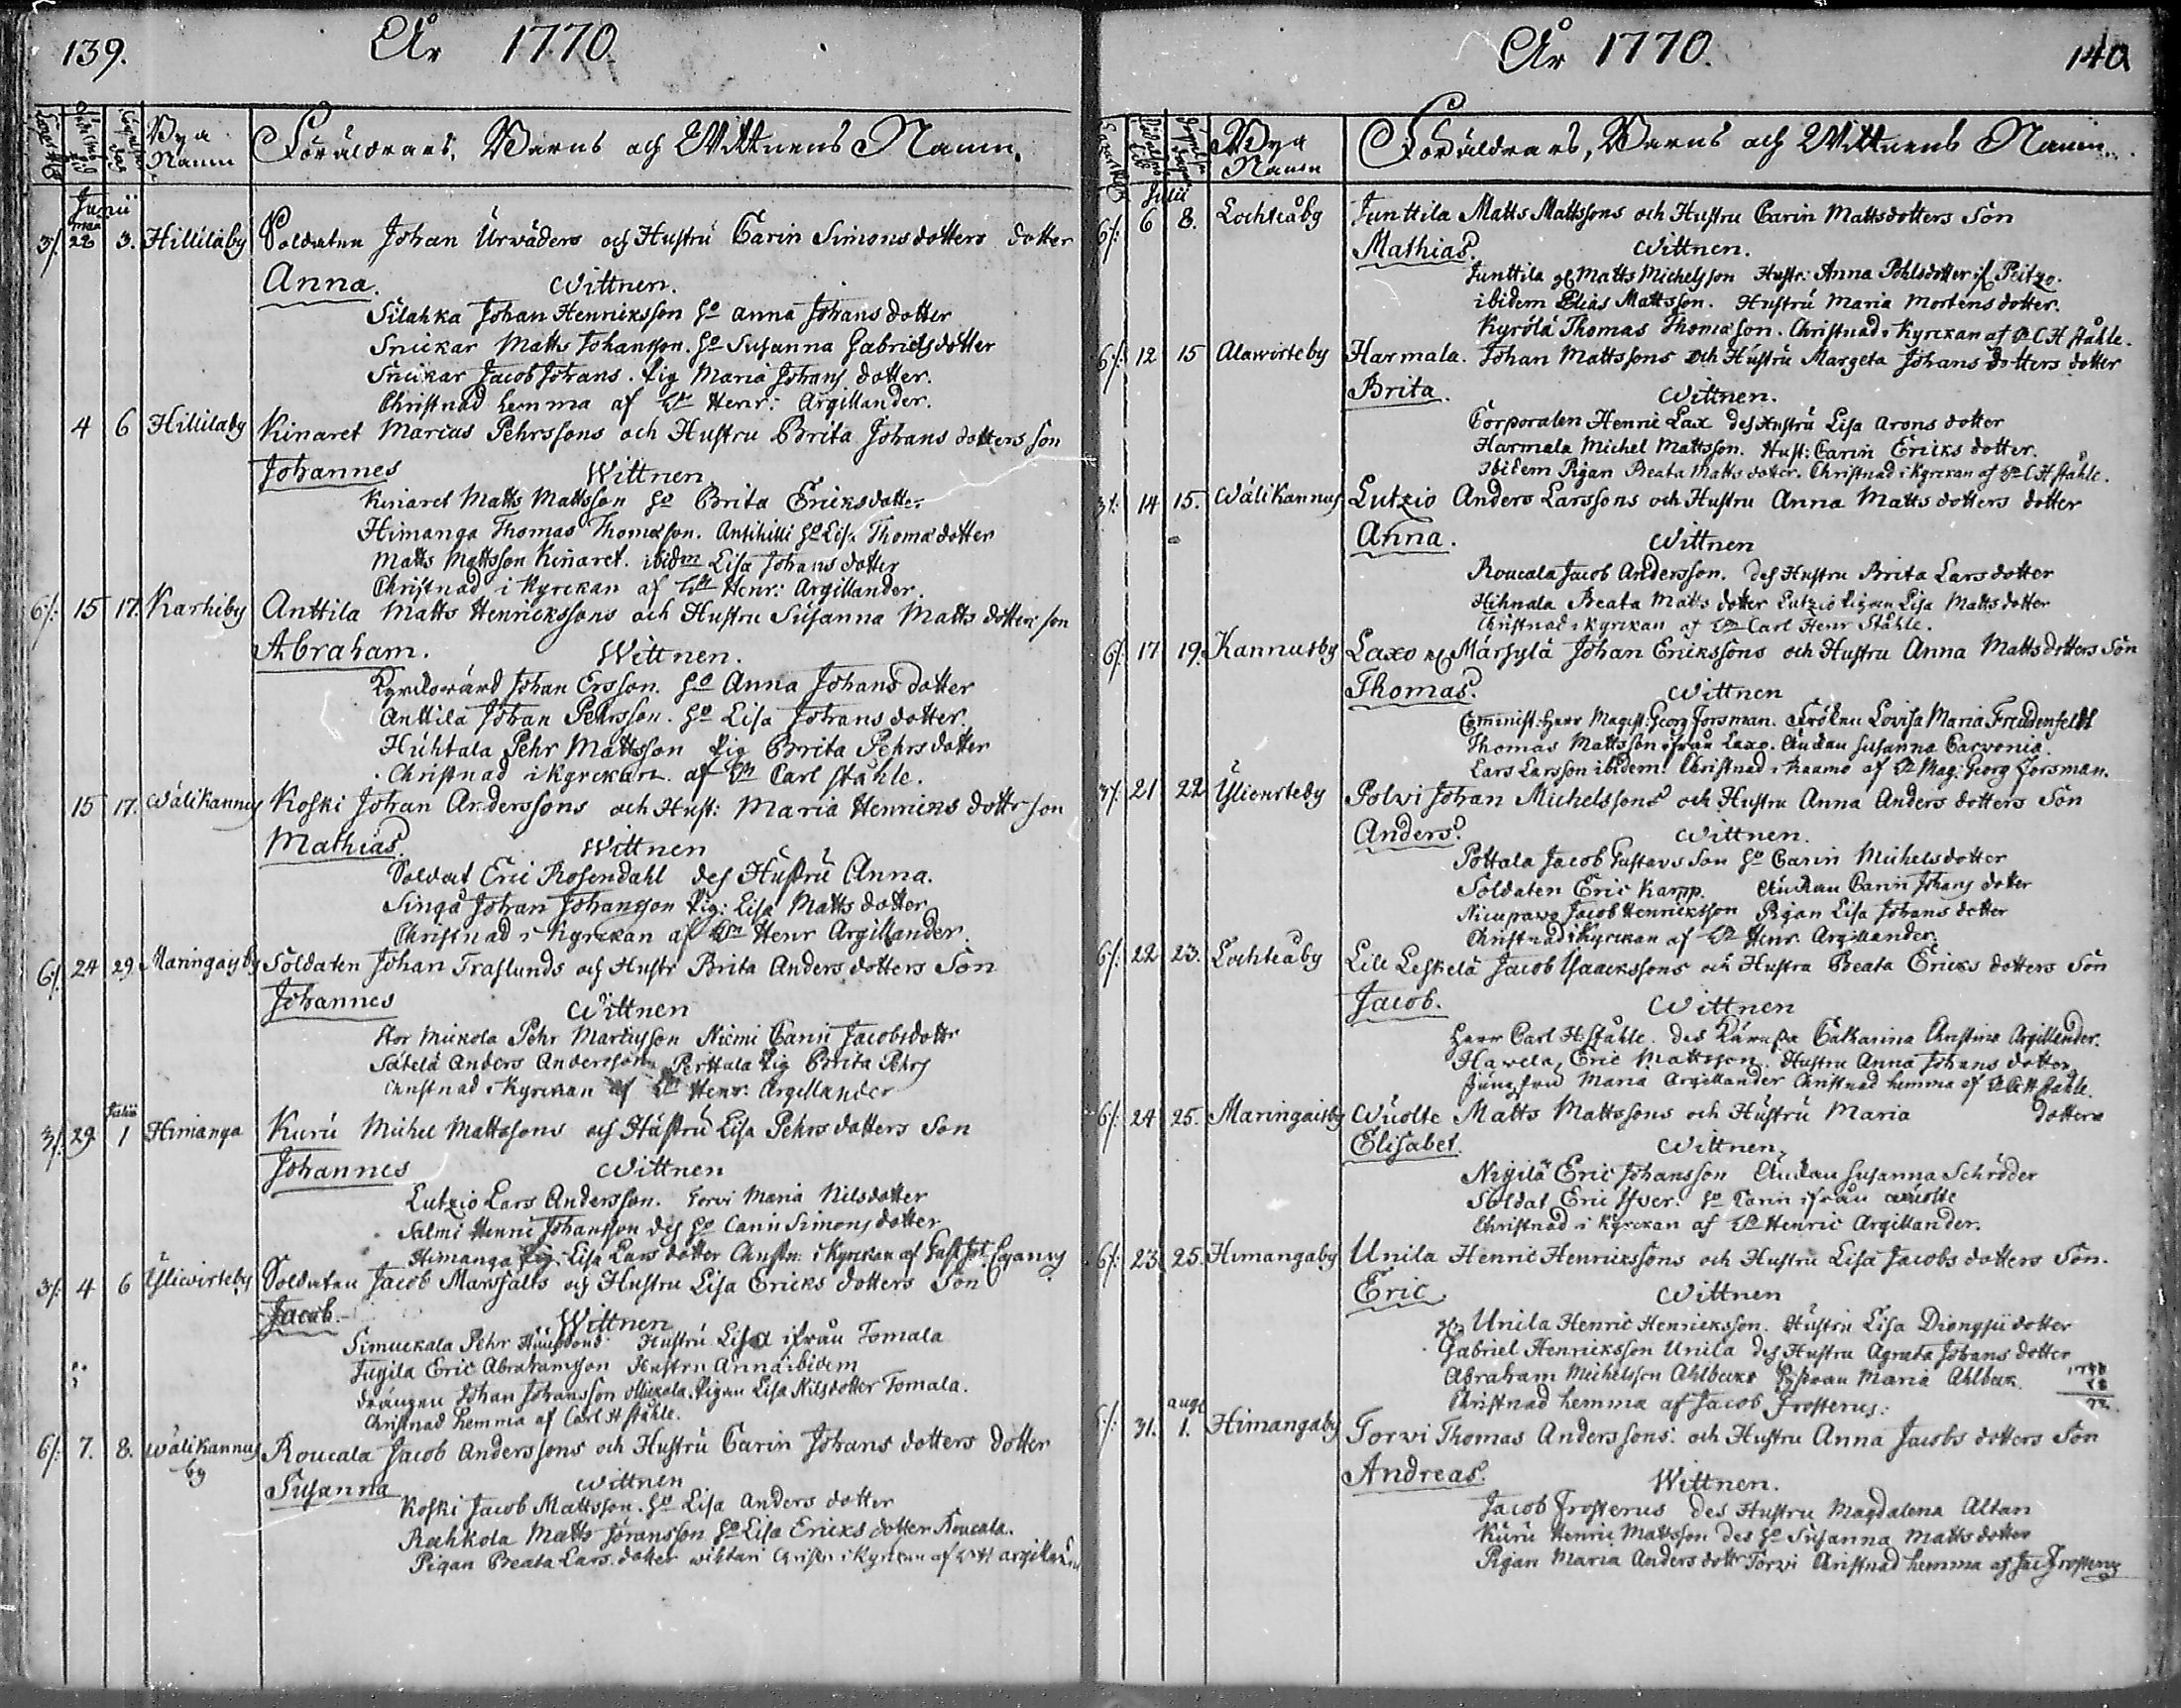 139.
År 1770.
Bya Namn
Föräldrars, Barns och Wittnens Namn.
Junii
3/: maii 28 3. Hillilaby Soldaten Johan Urväders och Hustru Carin Simonsdotters dotter
Anna. Wittnen.
Silahka Johan Henricksson ho Anna Johans dotter
Snickar Matts Johansson. ho Susanna Gabrielsdotter
Snickar Jacob Johans. pig Maria Johans dotter.
Christnad hemma af Henr: Argillander.
4 6 Hillilaby Kinaret Marcus Pehrssons och Hustru Brita Johans dotters son
Johannes Wittnen
Kinaret Matts Mattsson ho Brita Ericksdotter
Himanga Thomas Thomasson. Antihilli ho Lisa Thomædotter
Matts Mattsson Kinaret. ibidm Lisa Johans dotter
Christnad i Kyrckan af Henr: Argillander.
6/: 15 17. Karhiby Anttila Matts Henrickssons och Hustru Susanna Matts dotters son
Abraham. Wittnen.
Kyrckowärd Johan Ersson. ho Anna Johans dotter
Anttila Johan Pehrsson. ho Lisa Johans dotter.
Huhtala Pehr Mattsson pig Brita Pehrs dotter
Christnad i Kyrckan af Carl Ståhle.
15 17. Wälikannus Koski Johan Anderssons och Hust: Maria Henricks dottr son
Mathias. Wittnen
Soldat Eric Rosendahl des Hustru Anna.
Singå Johan Johansson pig: Lisa Matts dotter
Christnad i Kyrckan af Henr Argillander.
6/: 24 29 Maringaisby Soldaten Johan Traslunds och Hustr Brita Anders dotters Son
Johannes Wittnen
Stor Muckola Pehr Marcusson Niemi Carin Jacobsdottr
Sätelä Anders Andersson Perttula pig Brita Pehrs
Christnad i Kyrckan af Henr. Argillander
Julii
3/: 29. 1 Himanga Kuru Michel Mattssons och Hustru Lisa Pehrs dotters Son
Johannes Wittnen
Lutzio Lars Andersson. Torvi Maria Nilsdotter
Salmi Henric Johansson des ho Carin Simons dotter
Himanga pig: Lisa Lars dotter Christn: i Kyrckan af
3/: 4 6 Yliwirteby Soldaten Jacob Marsfalts och Hustru Lisa Ericks dotters Son
Jacob. Wittnen
Simuckala Pehr Huusbond Hustru Lisa ifrån Tomala
Jugila Eric Abrahamsson Hustru Anna ibidem
drängen Johan Johansson Muckola. Pigan Lisa Nilsdotter Tomala.
Christnad hemma af Carl H Ståhle.
6/: 7. 8. Wälikannus by Roucala Jacob Anderssons och Hustru Carin Johans dotters dotter
Susanna Wittnen
Koski Jacob Mattsson. ho Lisa Anders dotter
Rahkola Matts Göransson ho Lisa Ericks dotter Roucala.
Pigan Beata Lars dotter wilttari Christn i Kyrckan af H Argillander
År 1770.
140
Bya Namn
Föräldrars, Barns och Wittnens Namn.
Julii
6/: 6 8. Lochteåby Junttila Matts Mattssons och Hustru Carin Mattsdotters Son
Mathias. Wittnen.
Junttila Matts Michelsson Hustr: Anna Pohlsdotter if Peitzo.
ibidem Elias Mattsson. Hustru Maria Mortens dotter.
Kyrölä Thomas Thomasson. Christnad i Kyrckan af C H Ståhle.
6/: 12 15 Alawirteby Harmala. Johan Mattssons och Hustru Margeta Johans dotters dotter
Brita. Wittnen.
Corporalen Henric Lax des Hustru Lisa Arons dotter
Harmala Michel Mattsson. Hust: Carin Ericks dotter.
Ibidem Pigan Beata Matts dotter. Christnad i Kyrckan af C H Ståhle.
3/: 14 15. Wälikannus Lutzio Anders Larssons och Hustru Anna Matts dotters dotter
Anna. Wittnen
Roucala Jacob Andersson. des Hustru Brita Lars dotter
Hihnala Beata Matts dotter Lutzio Pigan Lisa Matts dotter
Christnad i Kyrckan af Carl Henr Ståhle.
6/: 17 19. Kannusby Laxo Märsylä Johan Erickssons och Hustru Anna Mattsdotters Son
Thomas. Wittnen
Cominist: Herr Magist: Georg Forsman. Fröken Lovisa Maria Freudenfeldt
Thomas Mattsson ifrån Laxo. Änckan Susanna Carvonia.
Lars Larsson ibidem. Christnad i Raumo af Mag: Georg Forsman.
3/: 21 22 Ylicursteby Polvi Johan Michelssons och Hustru Anna Anders dotters Son
Anders. Wittnen.
Pottala Jacob Gustavs Son ho Carin Michelsdotter
Soldaten Eric Kamp. Änckan Carin Johans dotter
Niempawo Jacob Henricksson Pigan Lisa Johans dotter
Christnad i Kyrckan af Henr. Argillander.
6/: 22 23. Lochteåby Lill Leskelä Jacob Isaackssons och Hustru Beata Ericks dotters Son
Jacob. Wittnen
Herr Carl H Ståhle. des Käresta Catharina Christina Argillander.
Hawela, Eric Mattsson. Hustru Anna Johans dotter
Jungfru Maria Argillander Christnad hemma af C H Ståhle.
6/: 24 25. Maringaisby Wuolte Matts Mattssons och Hustru Maria dotter
Elisabet. Wittnen,
Nigilä Eric Johansson Änckan Susanna Schröder
Soldat Eric Ifver. ho Carin ifrån Wuolte
Christnad i Kyrckan af Henric Argillander.
6/: 23 25. Himangaby Unila Henric Henrickssons och Hustru Lisa Jacobs dotters Son.
Eric Wittnen
Unila Henric Henricksson. Hustru Lisa Diongsii dotter
Gabriel Henricksson Unila des Hustru Agneta Johans dotter
Abraham Michelsson Ahlbecks Hustrun Maria Ahlbeck.
Christnad hemma af Jacob Frosterus:
augt
6/: 31. 1. Himangaby Torvi Thomas Anderssons och Hustru Anna Jacobs dotters Son
Andreas. Wittnen.
Jacob Frosterus des Hustru Magdalena Altan
Kuru Henric Mattsson des ho Susanna Matts dotter
Pigan Maria Anders dottr Torvi Christnad hemma af Jac Frosterus